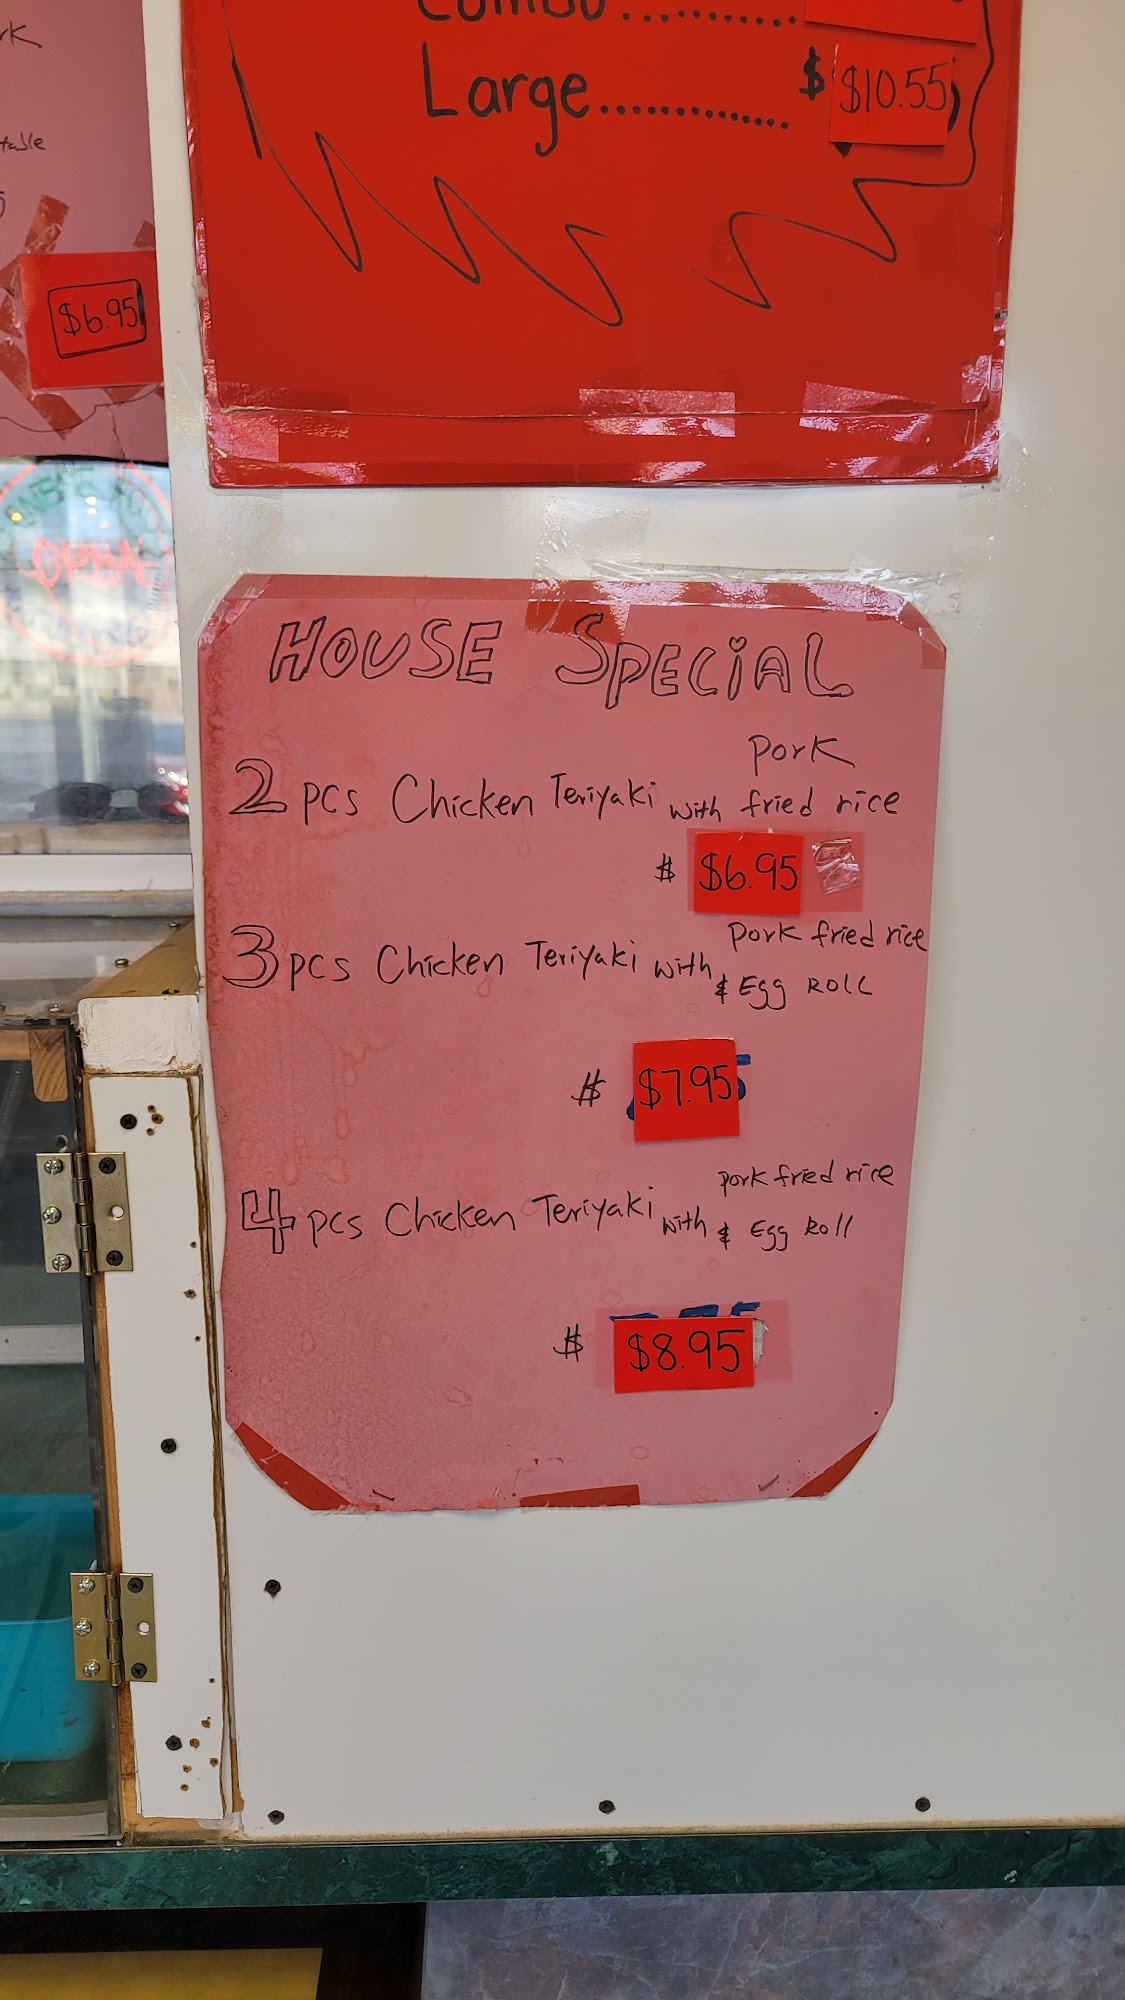 Combo..........
Large............. $ $10.55
$6.95
HOUSE SPECiAL
pork
2 pcs Chicken Teriyaki with fried rice
$ $6.95
3 pcs Chicken Teriyaki with pork fried rice
& Egg ROLL
$ $7.95
4 pcs Chicken Teriyaki with pork fried rice
& Egg Roll
$ $8.95